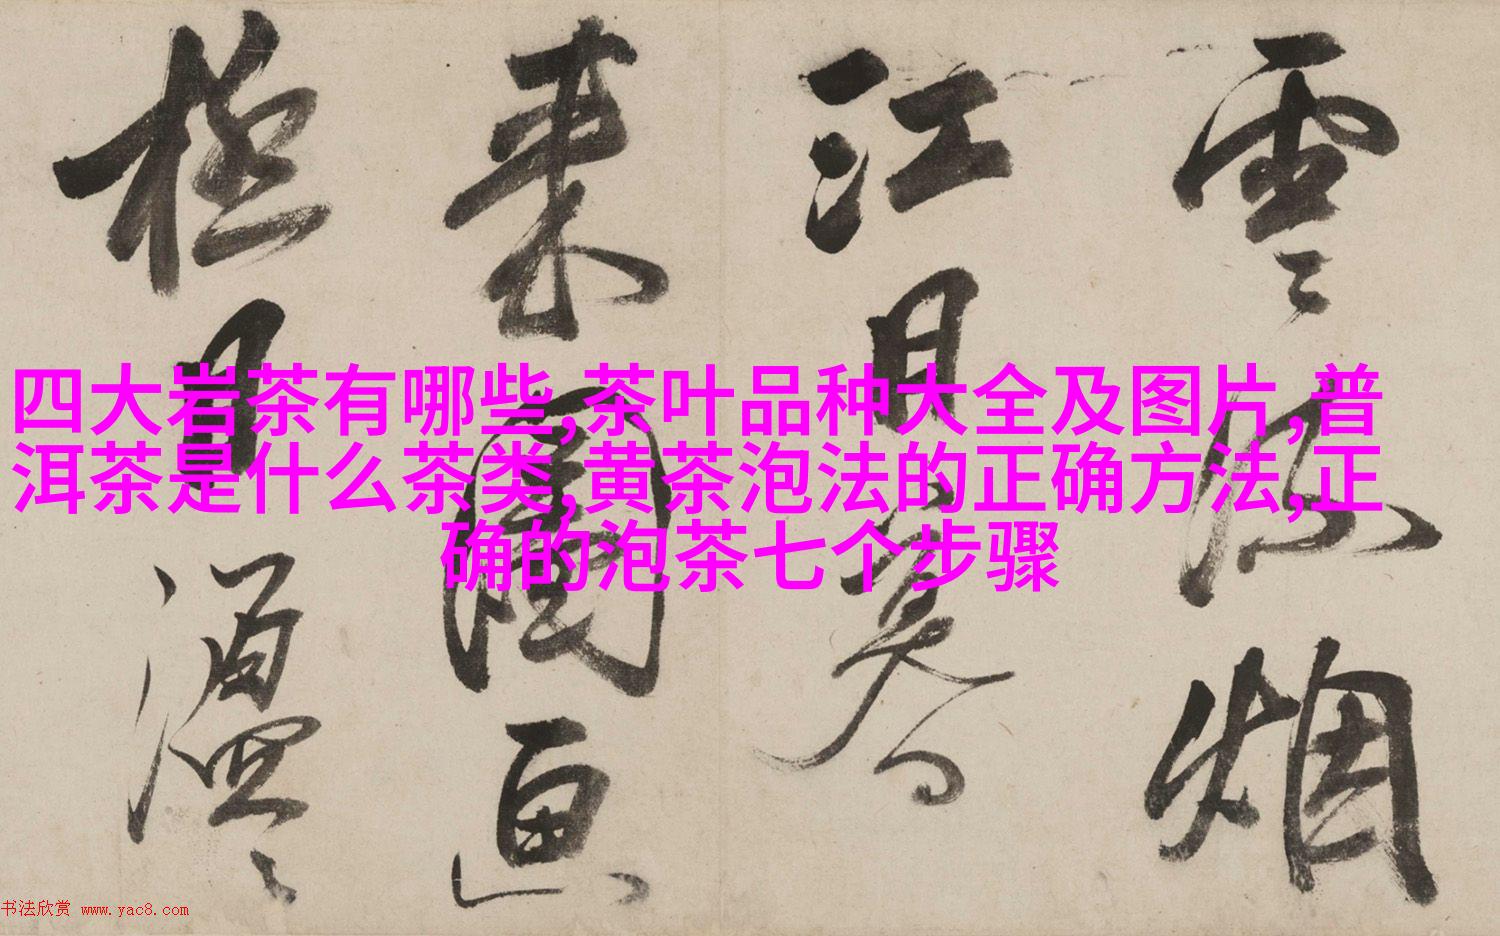 四大岩茶有哪些,茶叶品种大全及图片,普
洱茶是什么茶类,黄茶泡法的正确方法,正
确的泡茶七个步骤
雲 烟
江月
来 画
極目
书法欣赏 www.yac8.com